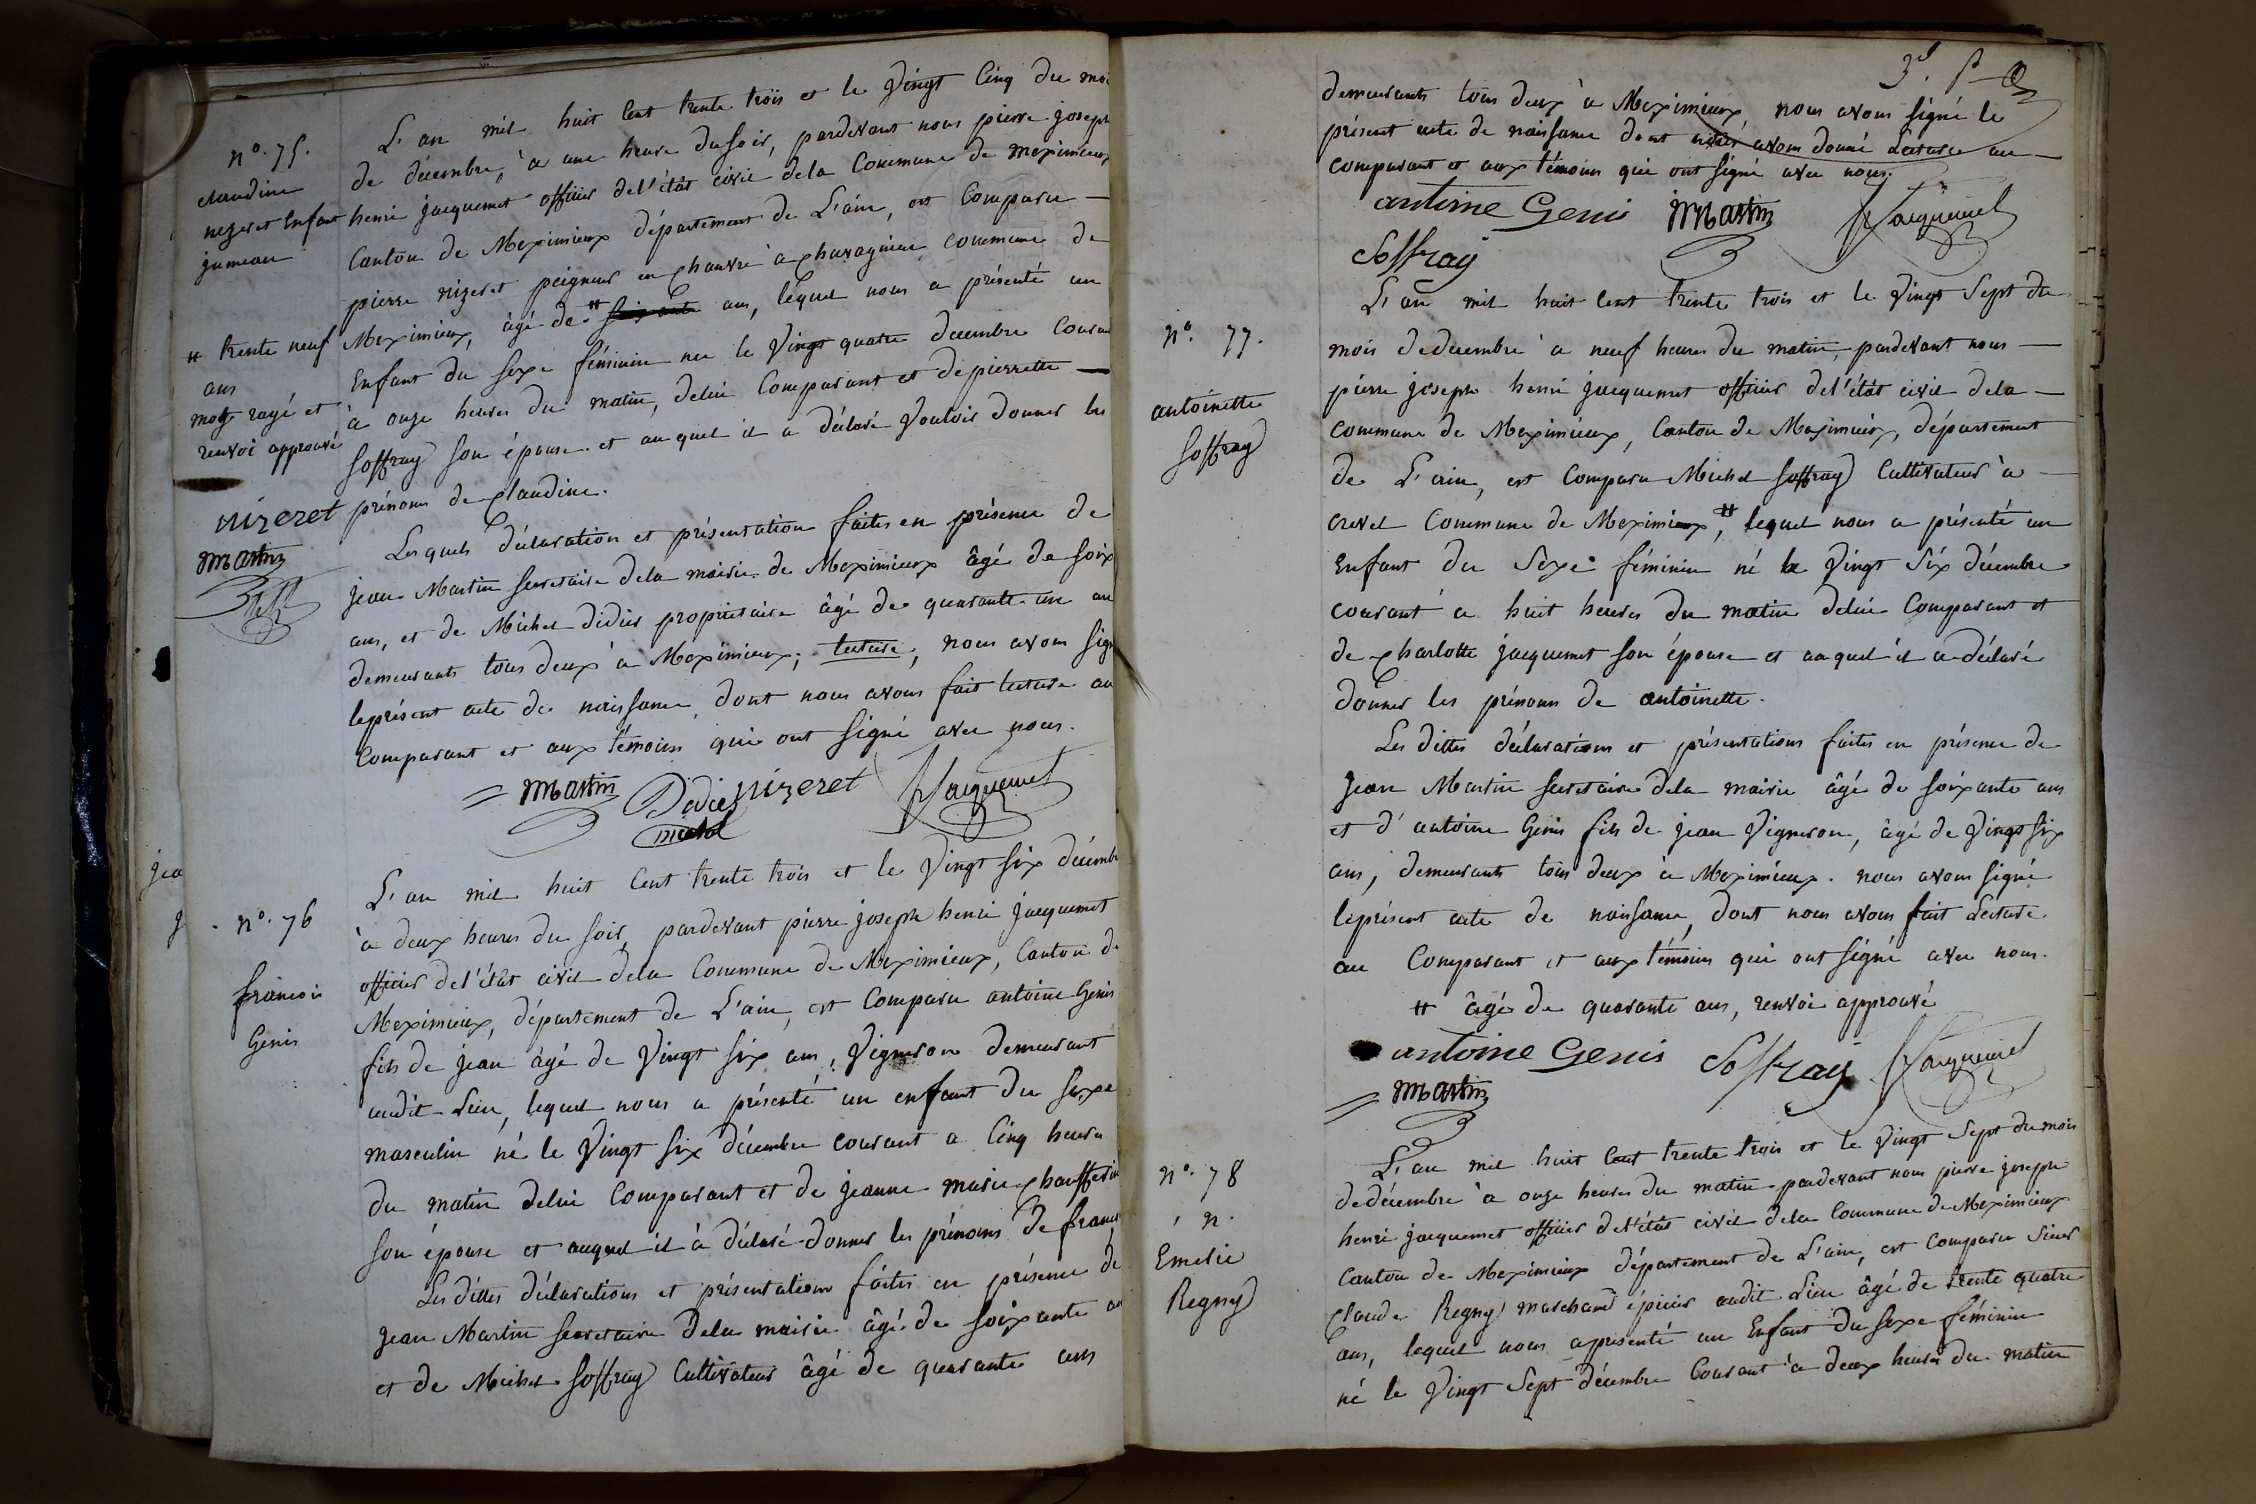 n.° 75.
claudine
nizeret Enfant
jumeau
# trente neuf
ans
mot rayé et
renvoi approuvé
nizeret
Martin
L'an mil huit cent trente trois et le vingt cinq du moi
de décembre, à une heure du soir, pardevant nous pierre joseph
henri jacquemet officier de l'état civil de la Commune de meximieux,
Canton de Meximieux département de L'ain, est Comparu —
pierre nizeret peigneur en chanvre à charagnieu commune de
Meximieux, âgé de # ans, lequel nous a présenté un
Enfant du sexe féminin né le vingt quatre decembre Couran
à onze heures du matin, de lui Comparant et de pierrette —
Soffray son épouse. et auquel il a déclaré vouloir donner les
prénoms de Claudine.
Lesquels déclaration et présentation faites en présence de
jean Martin secretaire de la mairie de Meximieux âgé de soix
ans, et de Michel didier propriétaire âgé de quarante un an
demeurants tous deux à Meximieux; lecture, nous avons sign
le présent acte de naissance, dont nous avons fait lecture au
Comparant et aux témoins qui ont signé avec nous.
= Martin Didier nizeret Jacquemet
michel
jea
j
n.° 76
francois
Genis
L'an mil huit Cent trente trois et le vingt six décemb
à deux heures du soir, pardevant pierre joseph henri jacquemet
officier de l'état civil de la Commune de Meximieux, Canton de
Meximieux, département de L'ain, est Comparu antoine Genis
fils de jean âgé de vingt six ans, vigneron demeurant
audit Lieu, lequel nous a présenté un enfant du sexe
masculin né le vingt six décembre courant a Cinq heures
du matin de lui Comparant et de jeanne marie
son épouse et auquel il à déclaré donner les prénoms de franç
Les dittes déclarations et présentations faites en présence de
jean Martin secretaire de la mairie âgé de soixante an
et de Michel Soffray Cultivateur âgé de quarante ans
demeurants tous deux à Meximieux, nous avons signé le
présent acte de naissance dont nous avons donné Lecture au —
comparant et aux témoins qui ont signé avec nous.
antoine Genis Martin Jacquemet
Soffray
n.° 77.
antoinette
Soffray
L'an mil huit cent trente trois et le vingt sept du
mois de decembre à neuf heures du matin, pardevant nous —
pierre joseph henri jacquemet officier de l'état civil de la —
commune de Meximieux, Canton de Meximieux, département
de L'ain, est Comparu Michel Soffray Cultivateur à —
crevel Commune de Meximieux,# lequel nous a présenté un
Enfant du Sexe féminin né le vingt six décembre
courant à huit heures du matin de lui Comparant et
de Charlotte jacquemet son épouse et auquel il a déclaré
donner les prénoms de antoinette.
Les dittes déclarations et présentations faites en présence de
Jean Martin secretaire de la mairie âgé de soixante ans
et d'antoine Genis fils de jean vigneron, âgé de vingt six
ans, demeurants tous deux à Meximieux. nous avons signé
le présent acte de naissance, dont nous avons fait Lecture
au Comparant et aux témoins qui ont signé avec nous.
# âgé de quarante ans, renvoi approuvé
antoine Genis Soffray Jacquemet
= Martin
n.° 78
n.
Emelie
Regny
L'an mil huit cent trente trois et le vingt sept du mois
de décembre à onze heures du matin pardevant nous pierre joseph
henri jacquemet officier de l'état civil de la Commune de Meximieux
Canton de Meximieux département de L'ain, est Comparu Sieur
Claude Regny marchand épicier audit Lieu âgé de trente quatre
ans, lequel nous a présenté un Enfant du sexe féminin
né le vingt Sept décembre Courant à deux heures du matin